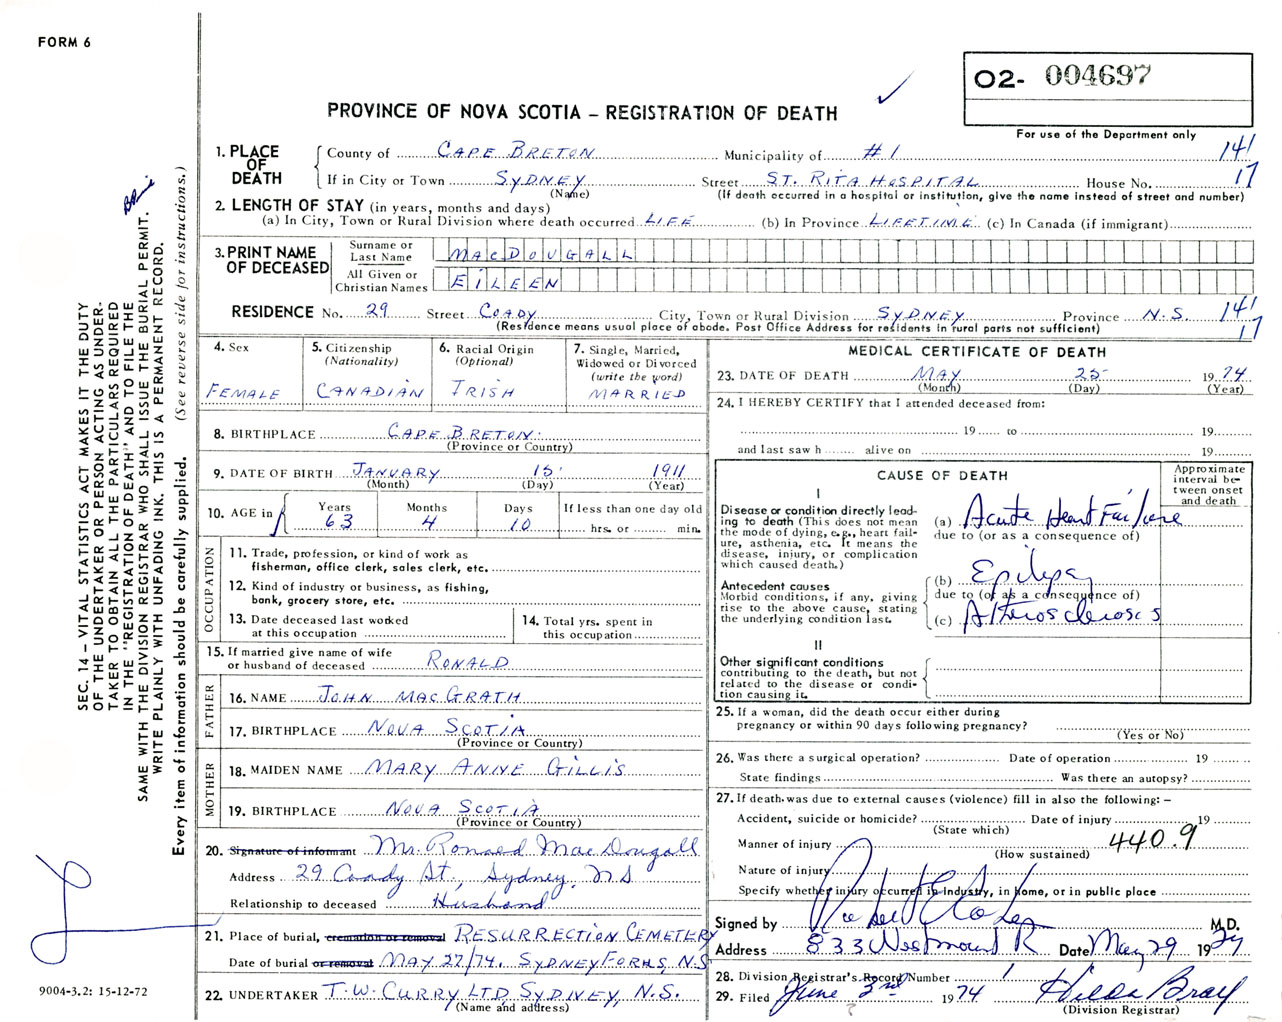 FORM 6
O2- 004697
PROVINCE OF NOVA SCOTIA – REGISTRATION OF DEATH
For use of the Department only
1. PLACE OF DEATH
County of CAPE BRETON Municipality of #1 141
If in City or Town SYDNEY Street ST. RITA HOSPITAL House No. 17
(Name) (If death occurred in a hospital or institution, give the name instead of street and number)
2. LENGTH OF STAY (in years, months and days)
(a) In City, Town or Rural Division where death occurred LIFE (b) In Province LIFETIME (c) In Canada (if immigrant)
3. PRINT NAME OF DECEASED
Surname or Last Name MACDOUGALL
All Given or Christian Names EILEEN
RESIDENCE No. 29 Street COADY City, Town or Rural Division SYDNEY Province N.S. 141
(Residence means usual place of abode. Post Office Address for residents in rural parts not sufficient) 17
4. Sex
FEMALE
5. Citizenship
(Nationality)
CANADIAN
6. Racial Origin
(Optional)
IRISH
7. Single, Married,
Widowed or Divorced
(write the word)
MARRIED
8. BIRTHPLACE CAPE BRETON
(Province or Country)
9. DATE OF BIRTH JANUARY 15 1911
(Month) (Day) (Year)
10. AGE in
Years Months Days If less than one day old
63 4 10 hrs. or min.
OCCUPATION
11. Trade, profession, or kind of work as
fisherman, office clerk, sales clerk, etc.
12. Kind of industry or business, as fishing,
bank, grocery store, etc.
13. Date deceased last worked
at this occupation
14. Total yrs. spent in
this occupation
15. If married give name of wife
or husband of deceased RONALD
FATHER
16. NAME JOHN MACGRATH
17. BIRTHPLACE NOVA SCOTIA
(Province or Country)
MOTHER
18. MAIDEN NAME MARY ANNE GILLIS
19. BIRTHPLACE NOVA SCOTIA
(Province or Country)
20. Signature of informant Mr. Ronald MacDougall
Address 29 Coady St., Sydney, NS
Relationship to deceased Husband
21. Place of burial, cremation or removal RESURRECTION CEMETERY
Date of burial or removal MAY 27/74. SYDNEY FORKS, N.S.
22. UNDERTAKER T.W. CURRY LTD, SYDNEY, N.S.
(Name and address)
MEDICAL CERTIFICATE OF DEATH
23. DATE OF DEATH MAY 25 1974
(Month) (Day) (Year)
24. I HEREBY CERTIFY that I attended deceased from:
19 to 19
and last saw h alive on 19
CAUSE OF DEATH
Approximate interval between onset and death
I
Disease or condition directly leading to death (This does not mean the mode of dying, e.g., heart failure, asthenia, etc. It means the disease, injury, or complication which caused death.)
(a) Acute Heart Failure
due to (or as a consequence of)
Antecedent causes
Morbid conditions, if any, giving rise to the above cause, stating the underlying condition last.
(b) Epilepsy
due to (or as a consequence of)
(c) Atherosclerosis
II
Other significant conditions
contributing to the death, but not
related to the disease or condition causing it.
25. If a woman, did the death occur either during
pregnancy or within 90 days following pregnancy?
(Yes or No)
26. Was there a surgical operation? Date of operation 19
State findings Was there an autopsy?
27. If death was due to external causes (violence) fill in also the following: –
Accident, suicide or homicide? Date of injury 19
(State which)
Manner of injury 440.9
(How sustained)
Nature of injury
Specify whether injury occurred in Industry, in home, or in public place
Signed by M.D.
Address 833 Westmount R Date May 29 1974
28. Division Registrar's Record Number 1
29. Filed June 3rd 1974 Hilda Bray
(Division Registrar)
SEC. 14 – VITAL STATISTICS ACT MAKES IT THE DUTY
OF THE UNDERTAKER OR PERSON ACTING AS UNDER-
TAKER TO OBTAIN ALL THE PARTICULARS REQUIRED
IN THE "REGISTRATION OF DEATH" AND TO FILE THE
SAME WITH THE DIVISION REGISTRAR WHO SHALL ISSUE THE BURIAL PERMIT.
WRITE PLAINLY WITH UNFADING INK. THIS IS A PERMANENT RECORD.
Every item of information should be carefully supplied. (See reverse side for instructions.)
9004-3.2: 15-12-72